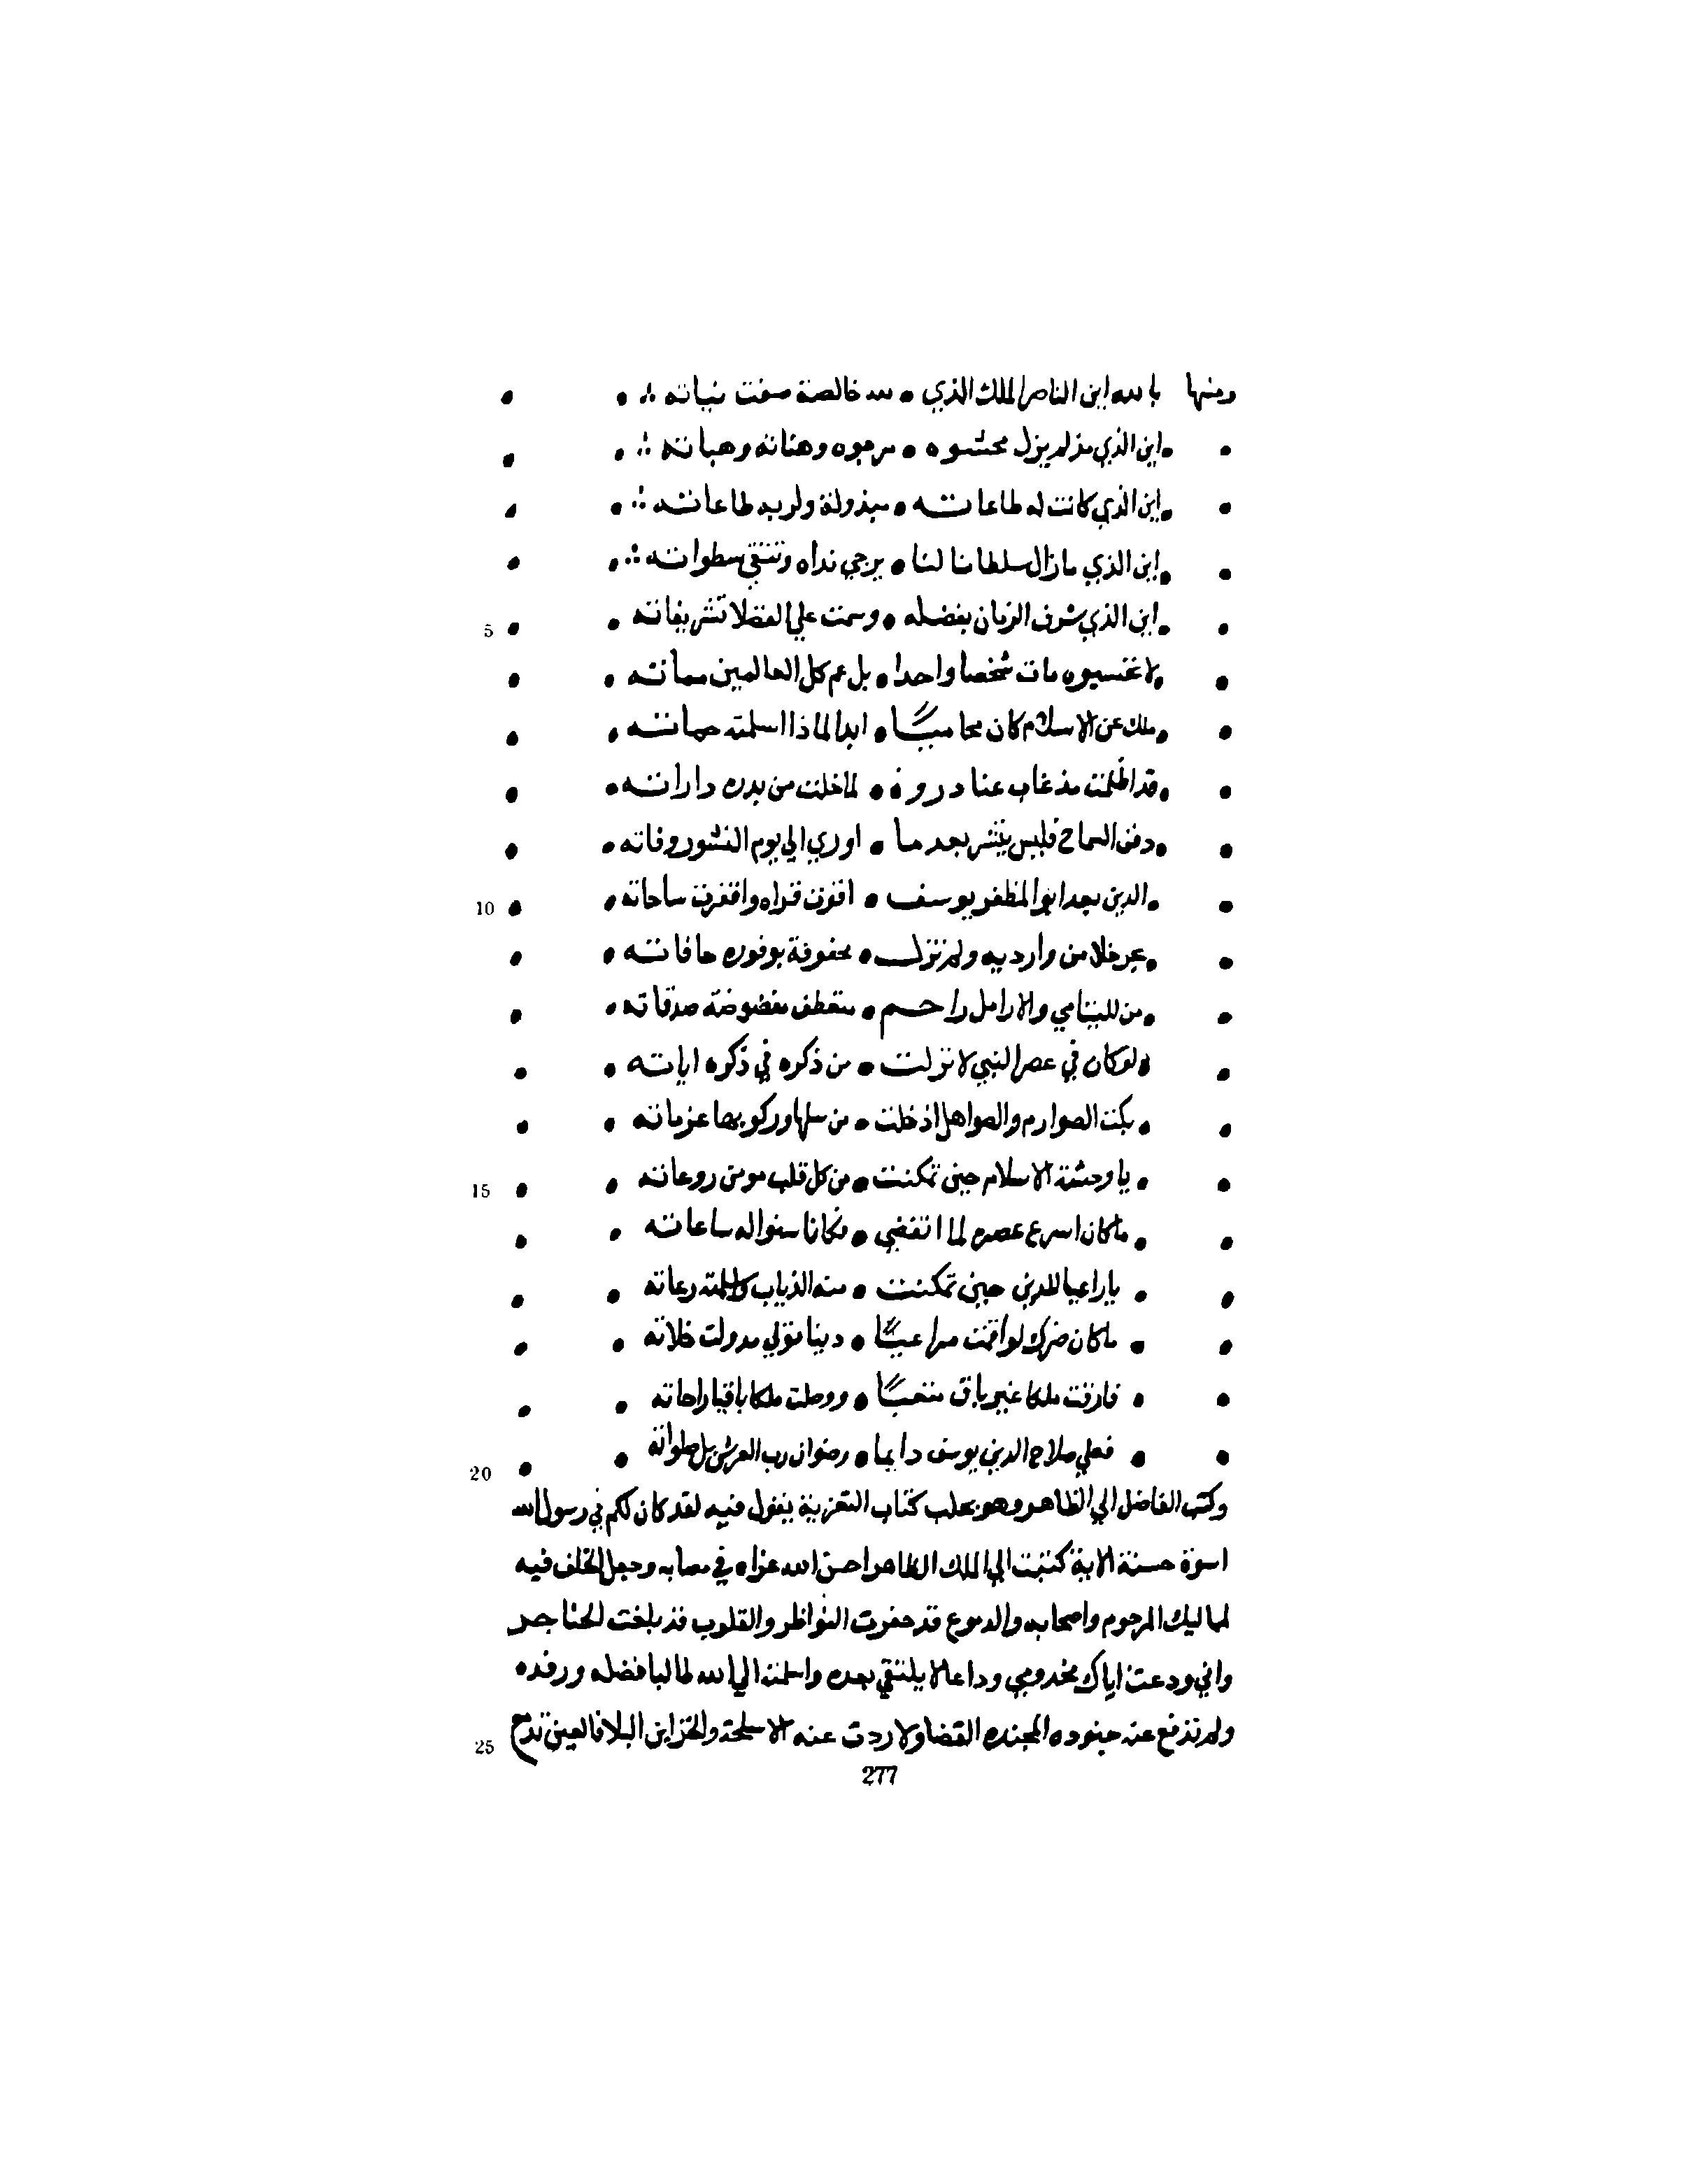 ومنها بالله اين الناصر الملك الذي • لله خالصة صفت نياته ∴ •
• اين الذي مذ لم يزل مخشوه • مرجوه وهناته وهباته ∴ •
• اين الذي كانت له طاعاته • مبذولة ولربه طاعاته ∴ •
• اين الذي مازال سلطانا لنا • يرجي نداه وتتقي سطواته ∴ •
• اين الذي شرف الزمان بفضله • وسمت علي الفضلا تشريفاته • 5
• لا تحسبوه مات شخصا واحدا • بل عم كل العالمين مماته •
• ملك عن الاسلام كان محاميًا • ابدا لماذا اسلمته حماته •
• قد اظلمت مذ غاب عنا دروه • لما خلت من بدره داراته •
• دفن السماح فليس ينشر بعد ما • اودي الي يوم النشور وفاته •
• الدين بعد ابو المظفر يوسف • اقوت قراه واقفرت ساحاته • 10
• بحر خلا من وارديه ولم تزل • محفوفة بوفوره حافاته •
• من لليتامي والارامل راحم • متعطف مفضوضة صدقاته •
• لو كان في عصر النبي لانزلت • من ذكره في ذكره اياته •
• بكت الصوارم والصواهل اذ خلت • من سلها وركوبها عزماته •
• يا وحشة الاسلام حين تمكنت • من كل قلب مومن روعاته • 15
• ما كان اسرع عصره لما انقضي • فكانا سنواله ساعاته •
• يا راعيا للدين حين تمكنت • منه الذياب واسلمته رعاته •
• ما كان ضرك لو اقمت مراعيًا • دينا تولي مدولت خلاته •
• فارقت ملكا غير باق متعبًا • ووصلت ملكا باقيا راحاته •
• فعلي صلاح الدين يوسف دايما • رضوان رب العرش بل صلواته • 20
وكتب الفاضل الي الظاهر وهو بحلب كتاب التعزية يقول فيه لقد كان لكم في رسول الله
اسوة حسنة الاية كتبت الي الملك الظاهر احسن الله عزاه في مصابه وجعل الخلف فيه
لماليك المرحوم واصحابه والدموع قد حفرت النواظر والقلوب قد بلغت الحناجر
واني ودعت اباك مخدومي وداعا لا يلتقي بعده واسلمته الي الله طالبا فضله ورفده
ولم تدفع عنه جنوده المجنده القضا ولا ردت عنه الاسلحة والخزاين البلا فالعين تدمع 25
277